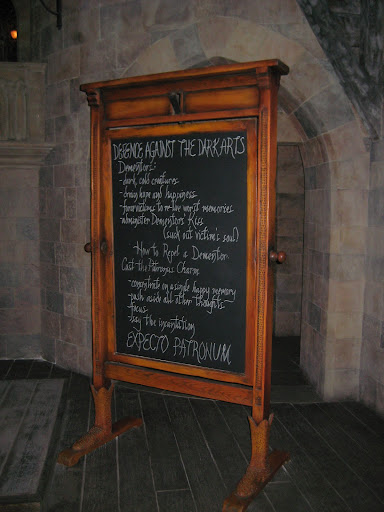 DEFENCE AGAINST THE DARK ARTS
Dementors:
- dark, cold creatures
- drain hope and happiness
- force victims to re-live worst memories
- administer Dementor's Kiss
(suck out victim's soul)
- How to Repel a Dementor
Cast the Patronus Charm
- concentrate on a single happy memory
- push aside all other thoughts
- focus
- say the incantation
EXPECTO PATRONUM